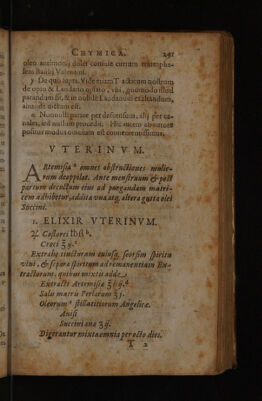 CHYMICA. 291
oleo antimonii dulci consule currum triumpha-
lem Basilii Valentini.
y De quo supra. Vide etiam Tractatum nostrum
de opio & Laudano opiato, ubi, quomodo illud
parandum sit, & in nobile Laudanum exaltandum,
z Nonnulli parant per descensum, alij per ca-
nales, sed nostrum procedit. Hic autem
positus modus omnium est convenientissimus.
UTERINUM.
ARtemisia a omnes obstructiones mulie-
rum deoppilat. Ante menstruum & post
partum decoctum eius ad purgandam matri-
cem adhibetur, addita una atq́, altera gutta olei
Succini.
1. ELIXIR UTERINUM.
♃ Castorei ℔ß b.
Croci ℥ij. c
Extrahe tincturam cuiusq́, seorsim spiritu
vini, & separa spiritum ad remanentiam Ex-
tractorum, quibus mixtis adde,
Extracti Artemisiæ ℥ d
Salis matris Perlarum ℥j.
Oleorum e stillatitiorum Angelicæ.
Anisi
Succini ana ʒij.
Digerantur mixta omnia per octo dies.
T 2